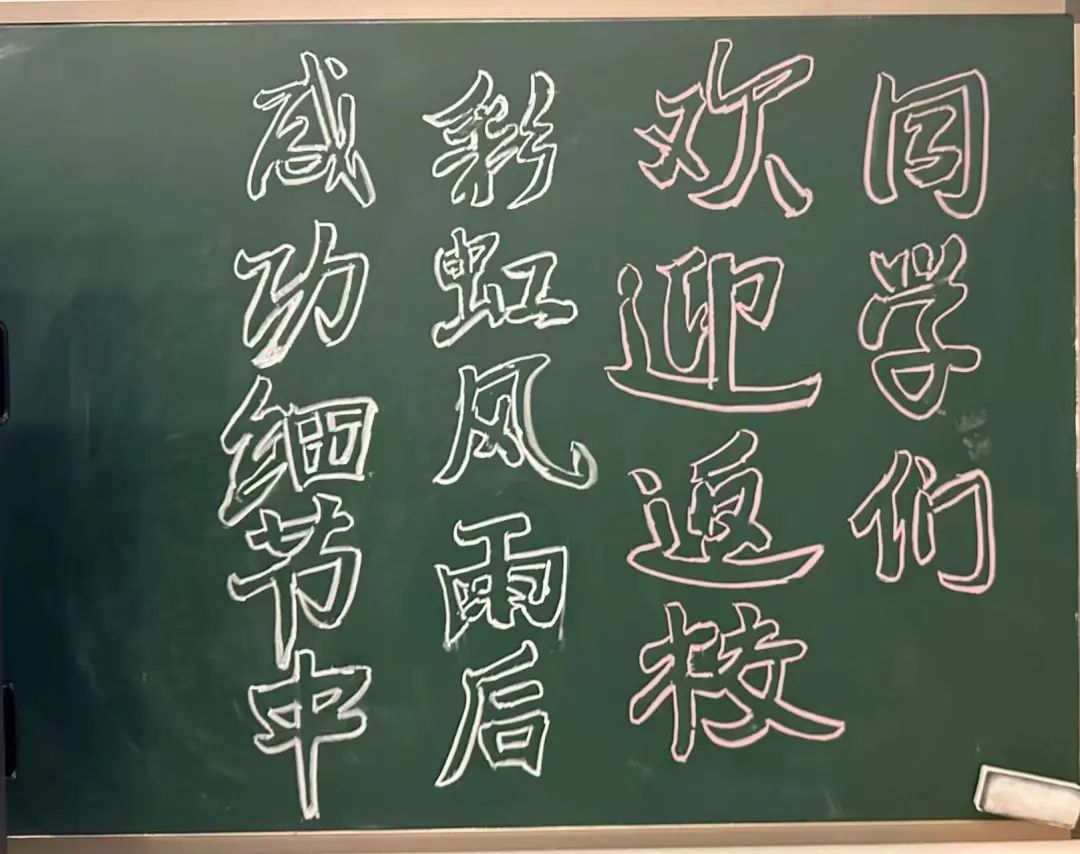 同学们
欢迎返校
彩虹风雨后
成功细节中